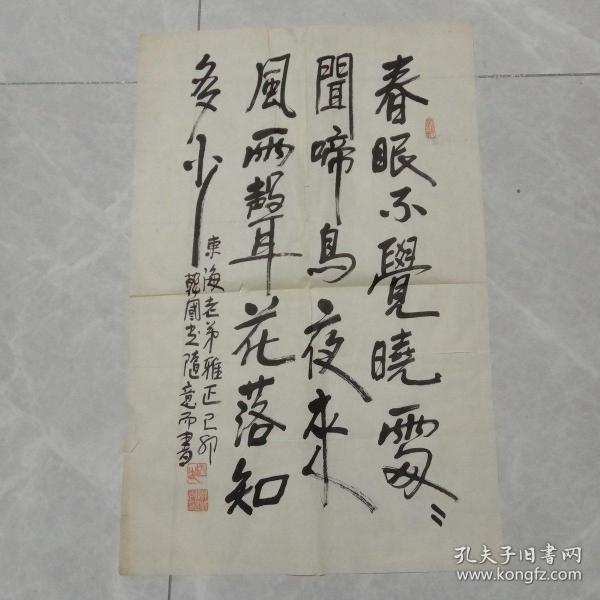 春眠不覺曉處〻
聞啼鳥夜來
風雨聲花落知
多少
東海老弟雅正己卯
韓國忠隨意而書
孔夫子旧书网
www.kongfz.com